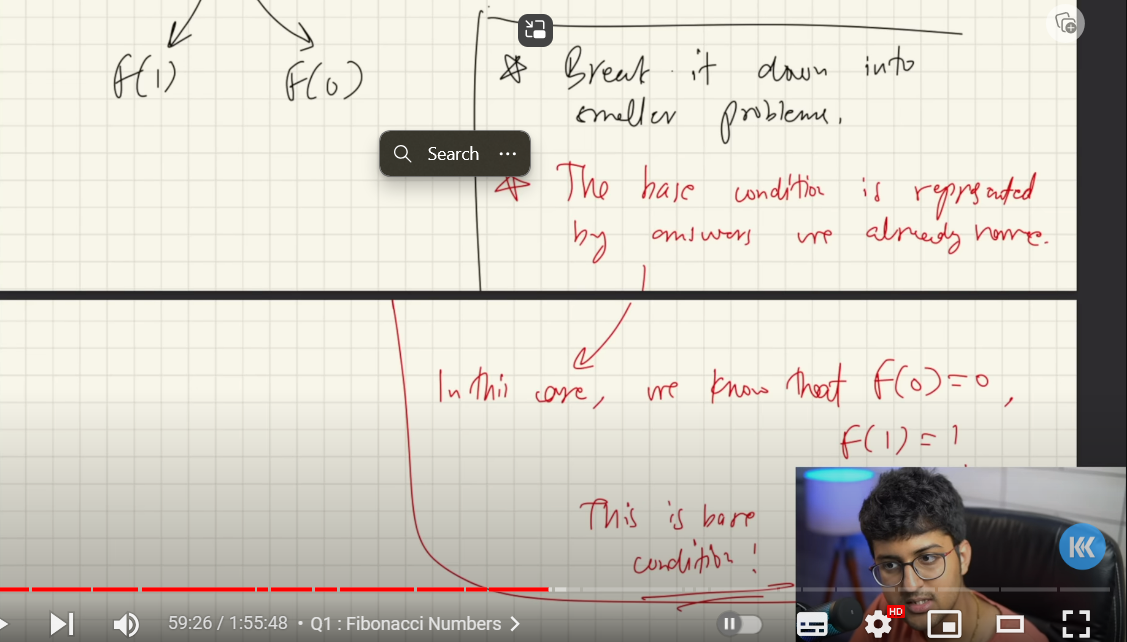 F(1) F(0)
Break it down into
smaller problems.
Search
The base condition is represented
by answers we already have.
In this case, we know that F(0) = 0,
F(1) = 1
This is base
condition!
59:26 / 1:55:48 • Q1 : Fibonacci Numbers
HD